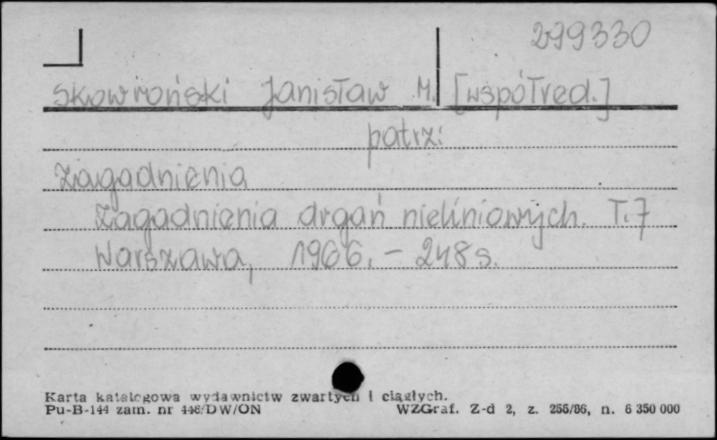 299330
Skowroński Janisław M. [współred.]
patrz:
Zagadnienia
Zagadnienia drgań nieliniowych. T. 7
Warszawa, 1966. – 248 s.
Karta katalogowa wydawnictw zwartych i ciągłych.
Pu-B-144 zam. nr 446/DW/ON WZGraf. Z-d 2, z. 256/86, n. 6 350 000